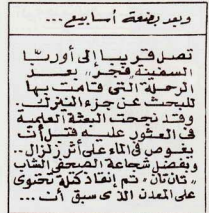 وبعد بضعة أسابيع...
تصل قريبا إلى أوربا
السفينة "فجر" بعد
الرحلة التى قامت بها
للبحث عن جزء النيزك.
وقد نجحت البعثة العلمية
فى العثور عليه قبل أن
يغوص فى الماء على أثر زلزال..
وبفضل شجاعة الصحفى الشاب
"تان تان"، تم إنقاذ كتلة تحتوى
على المعدن الذى سبق أن...